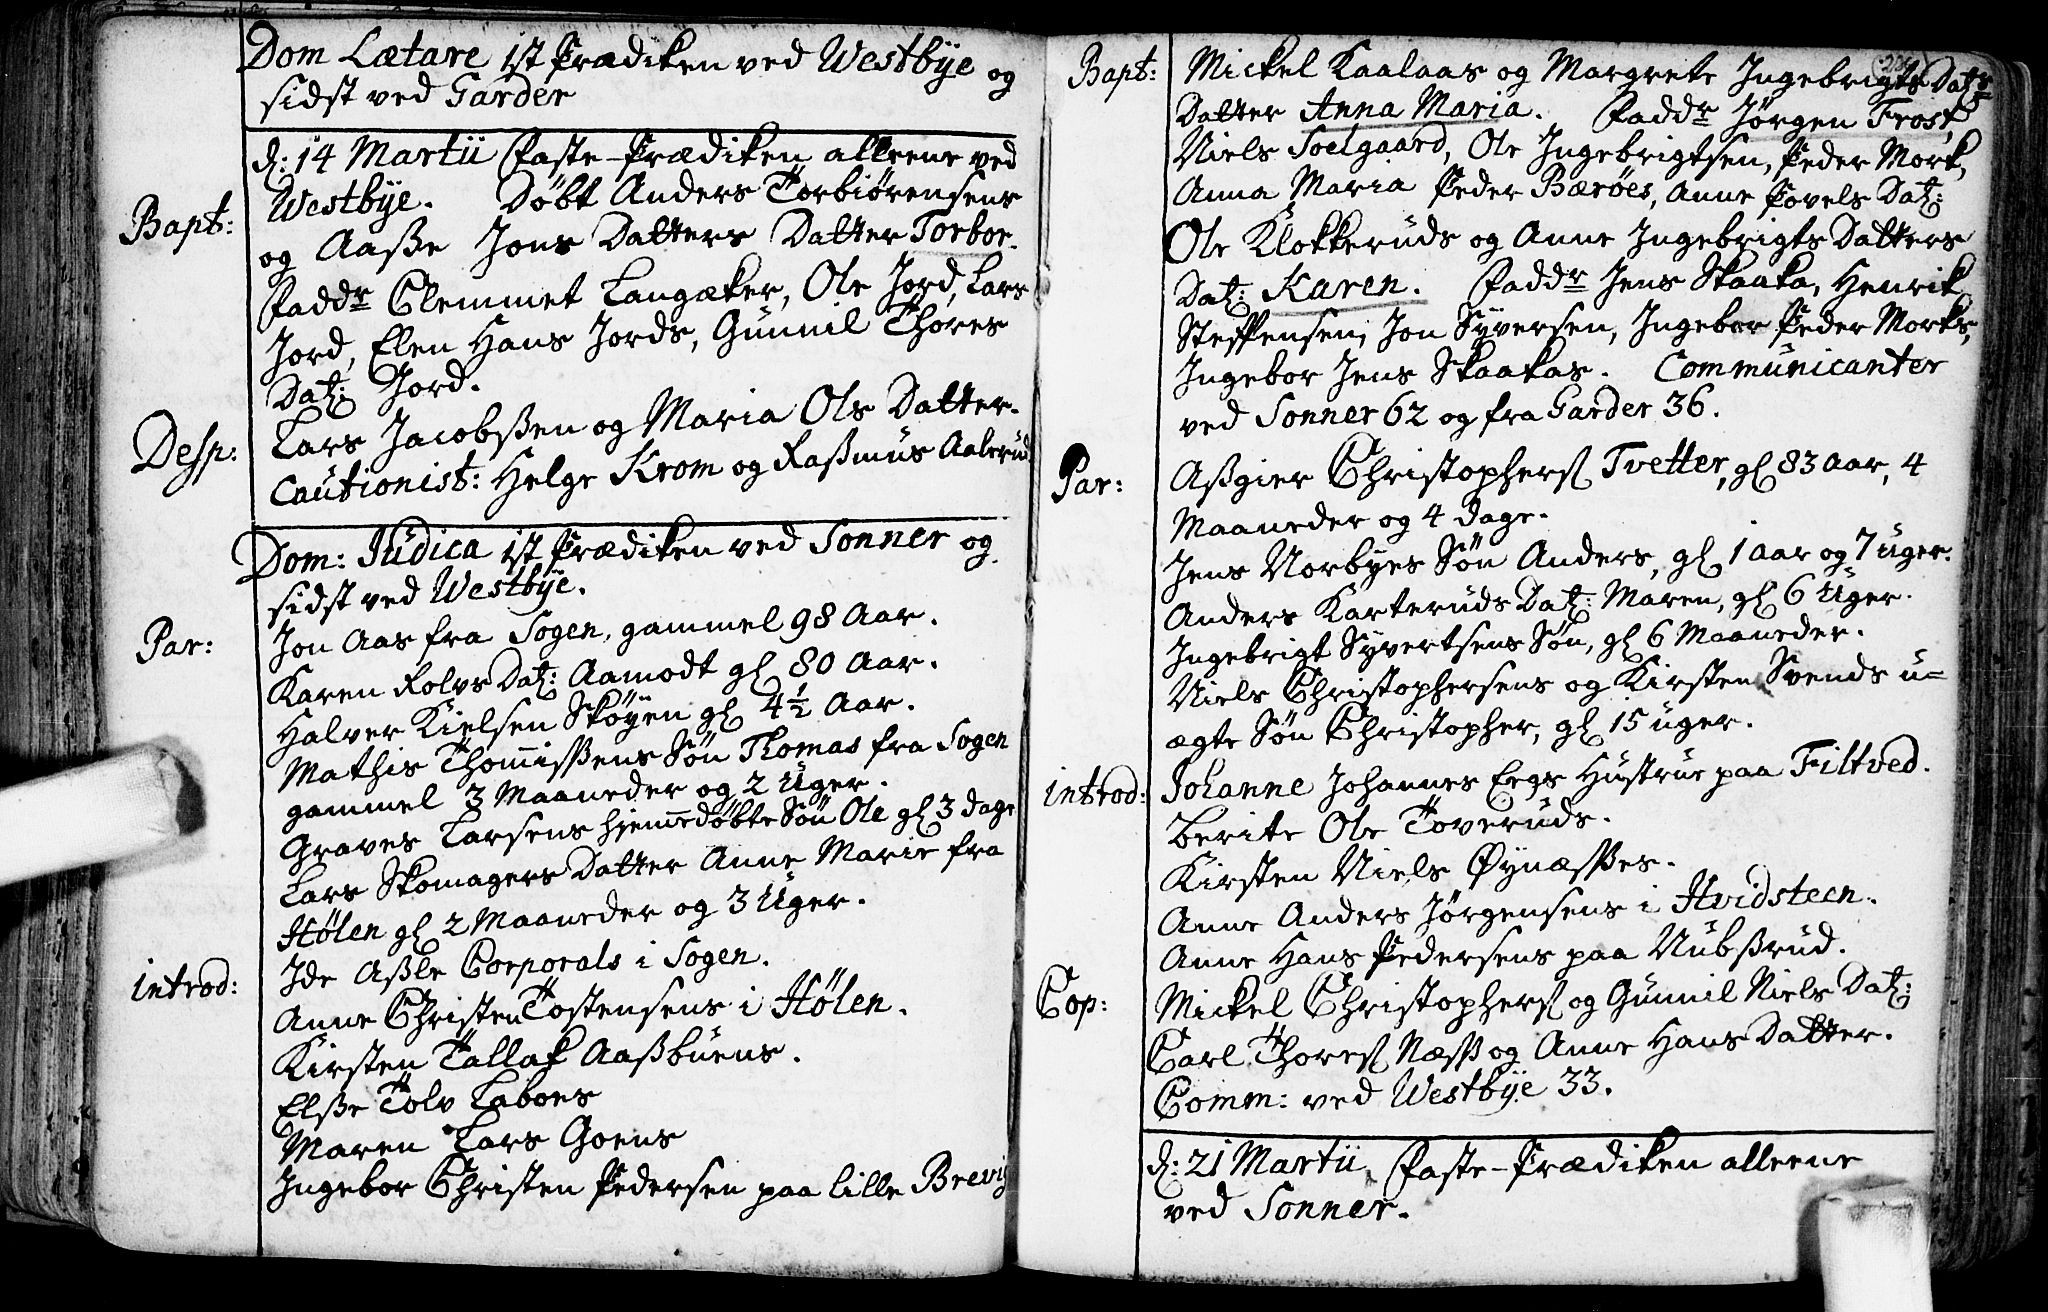 Dom Lætare 1st Prædiken ved Westbÿe og
sidst ved Garder
d: 14 Martii Faste-Prædiken alleene ved
Bapt: Westbÿe. Døbt Anders Torbiørensens
og Aaße Jons Datters Datter Torbor.
Faddr Clemmet Langæker, Ole Jord, Lars
Jord, Elen Hans Jords, Gunnil Thores
Dat: Jord.
Desp: Lars Jacobßen og Maria Ols Datter.
Cautionist: Helge Krom og Raßmus Aalerud
Dom: Judica 1st Prædiken ved Sonner og
sidst ved Westbÿe.
Par: Jon Aas fra Sogen, gammel 98 Aar.
Karen Rolvs Dat: Aamodt gl 80 Aar.
Halver Kielsen Skøÿen gl 4½ Aar.
Mathis Thomißens Søn Thomas fra Sogen
gammel 3 Maaneder og 2 Uger.
Graves Larsens hjemedøbte Søn Ole gl 3 dage
Lars Skomagers Datter Anne Marie fra
Hølen gl 2 Maaneder og 3 Uger.
introd: Ide Aßle Corporals i Sogen.
Anne Christen Tostensens i Hølen.
Kirsten Tallak Aaßbuens.
Elße Tolv Laboes
Maren Lars Goens
Ingebor Christen Pedersen paa lille Brevig
Bapt: Mickel Kaalaas og Margrete Ingebrigts Datr
Datter Anna Maria. Faddr Jørgen Frost,
Niels Soelgaard, Ole Ingebrigtsen, Peder Mork,
Anna Maria Peder Bærøes, Anne Povels Dat:
Ole Klokkeruds og Anne Ingebrigts Datters
Dat: Karen. Faddr Jens Skaaka, Henrik
Steffensen, Jon Sÿversen, Ingebor Peder Morks,
Ingebor Jens Skaakas. Communicanter
ved Sonner 62 og fra Garder 36.
Par: Aßgier Christophers Tvetter, gl 83 Aar, 4
Maaneder og 4 Dage.
Jens Norbyes Søn Anders, gl 1 Aar og 7 Uger.
Anders Karteruds Dat: Maren, gl 6 Uger.
Ingebrigt Syvertsens Søn, gl 6 Maaneder.
Niels Christophersens og Kirsten Svends u=
ægte Søn Christopher, gl 15 Uger.
introd: Johanne Johannes Eegs Hustrue paa Filtved.
Berite Ole Toveruds.
Kirsten Niels Øynæßes.
Anne Anders Jørgensens i Hvidsteen.
Anne Hans Pedersens paa Nubßrud.
Cop: Mickel Christophers og Gunnil Niels Dat:
Carl Thores Næß og Anne Hans Datter.
Comm: ved Westbÿe 33.
d: 21 Martii, Faste-Prædiken alleene
ved Sonner.